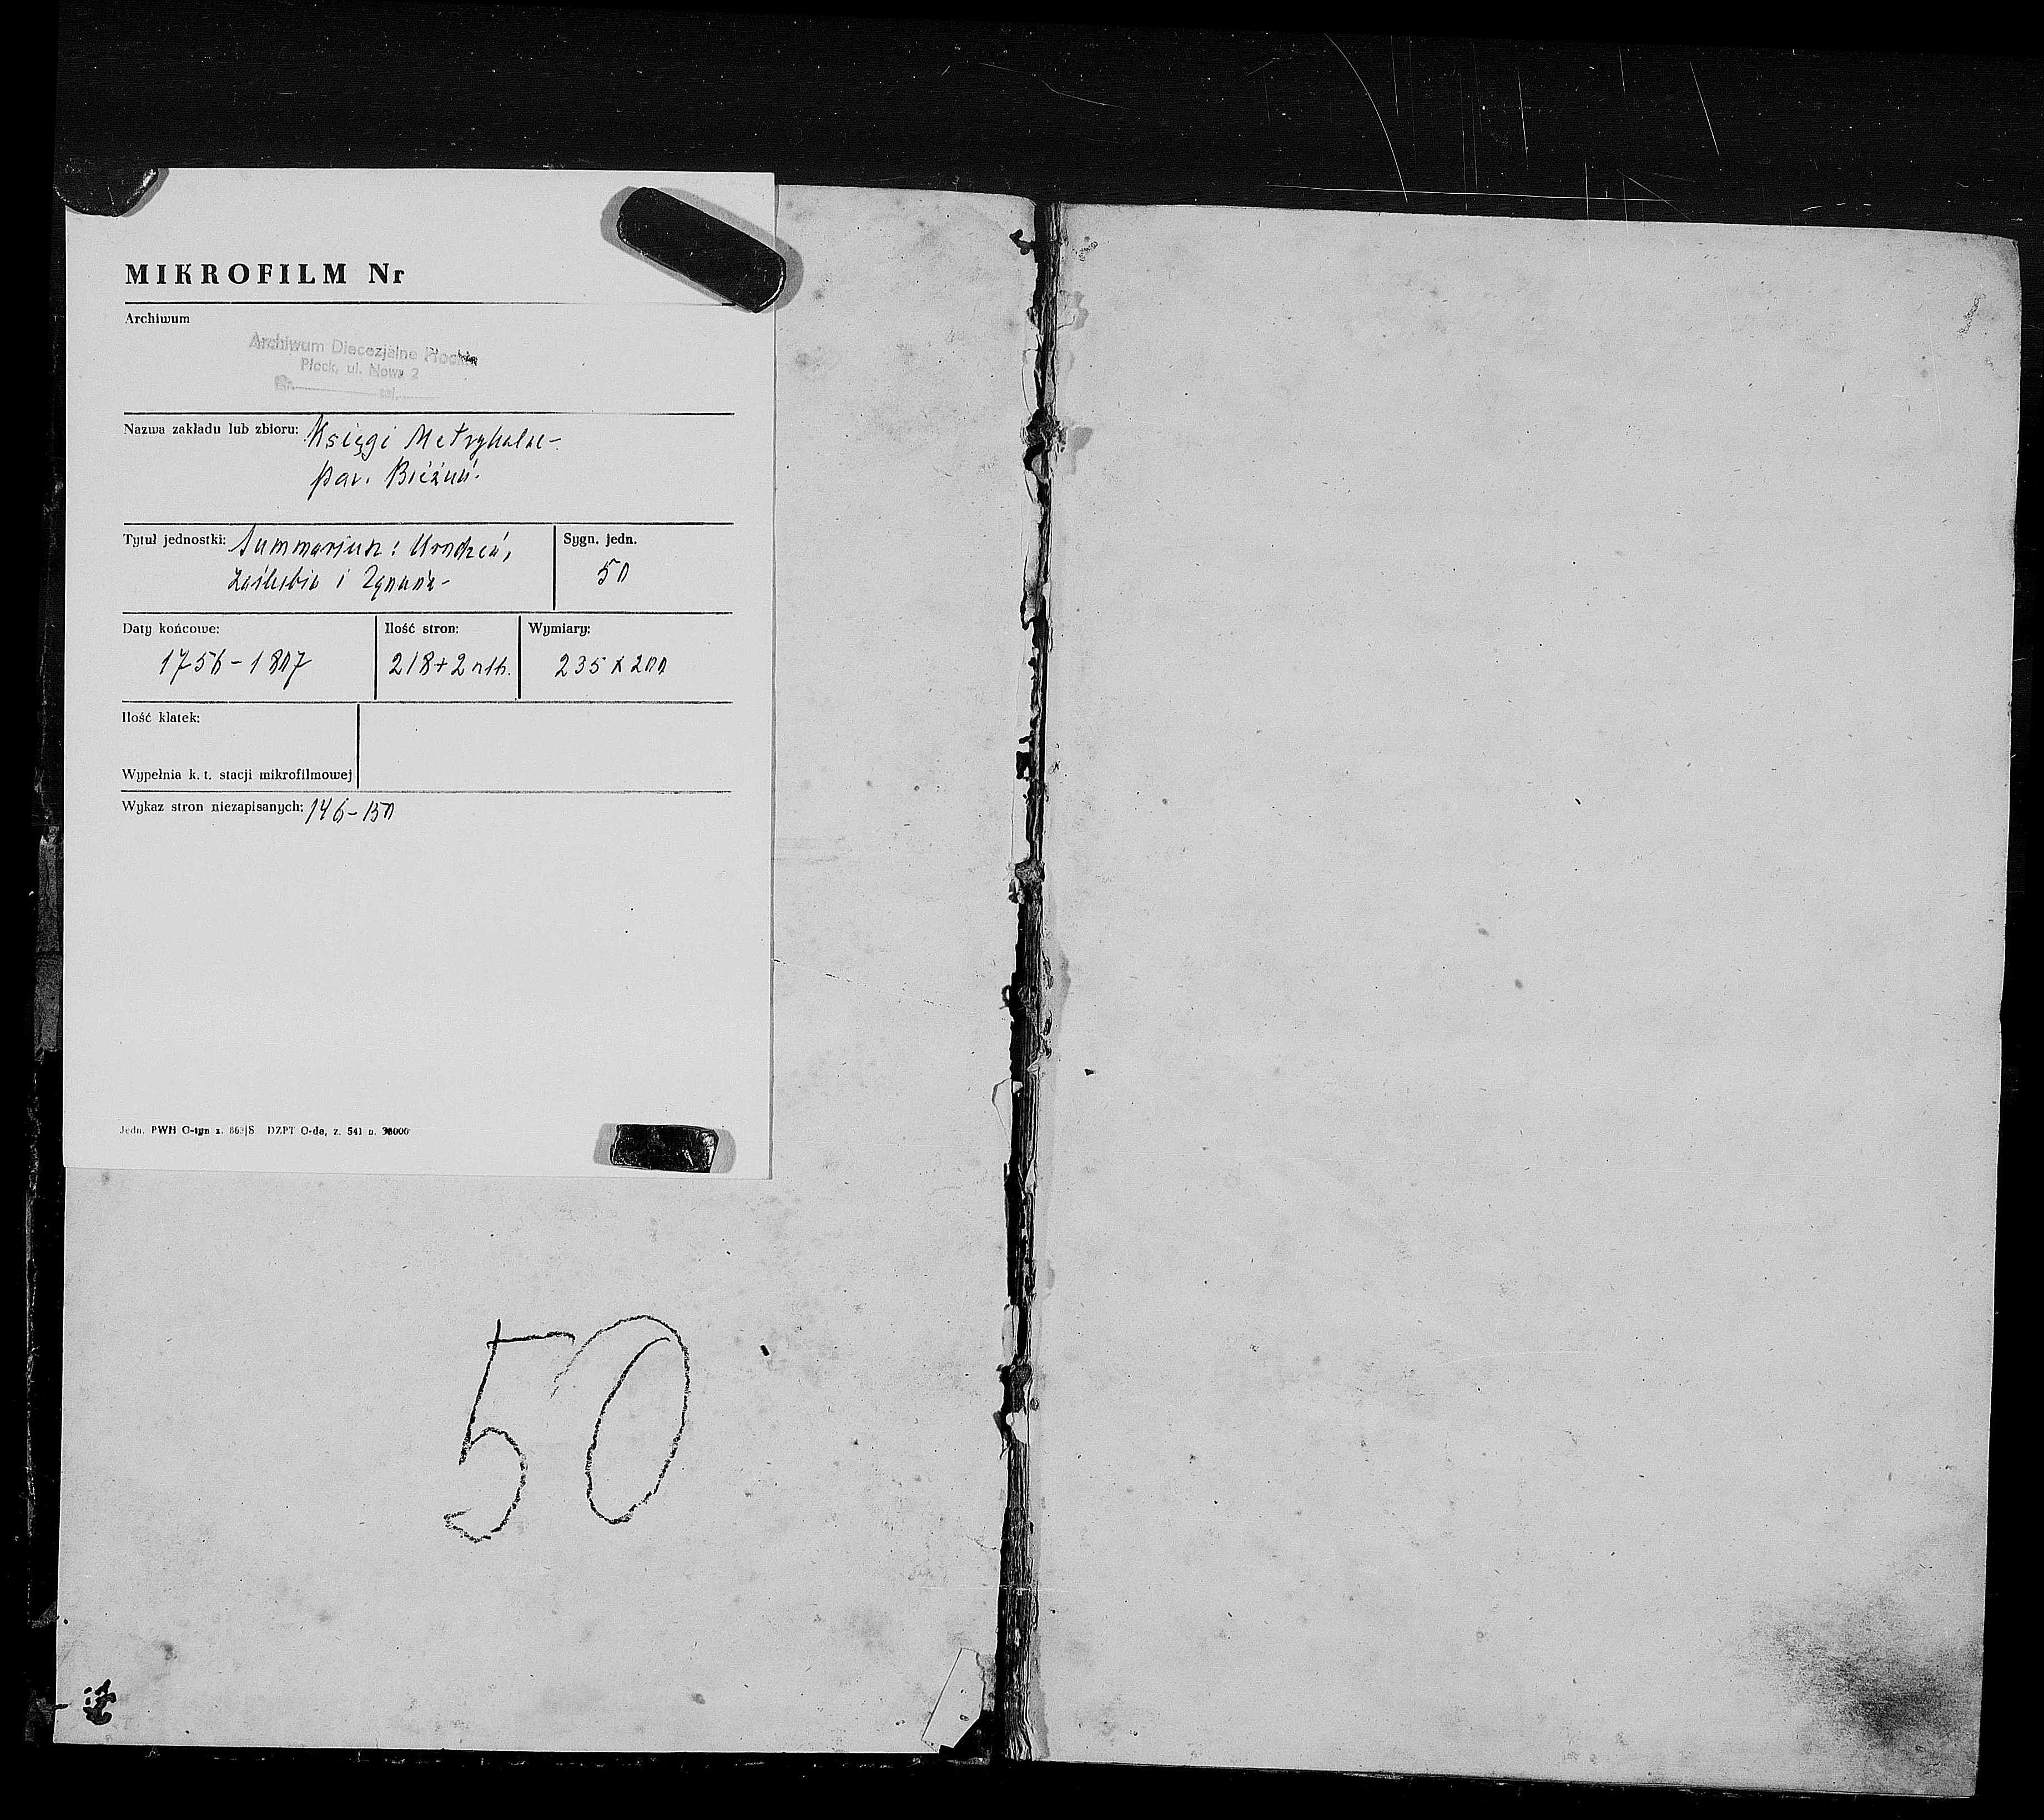 MIKROFILM Nr
Archiwum
Archiwum Diecezjalne Płockie
Płock, ul. Nowa 2
Nr. tel.
Nazwa zakładu lub zbioru: Księgi Metrykalne
par. Bieżuń
Tytuł jednostki: Summariusz: Urodzeń,
zaślubin i Zgonów
Sygn. jedn.
50
Daty końcowe:
1756-1807
Ilość stron:
218+2 nlb.
Wymiary:
235 x 200
Ilość klatek:
Wypełnia k. t. stacji mikrofilmowej
Wykaz stron niezapisanych: 146-150
Jedn. PWH O-tyn z. 863/S DZPT O-da, z. 541 n.
50
1